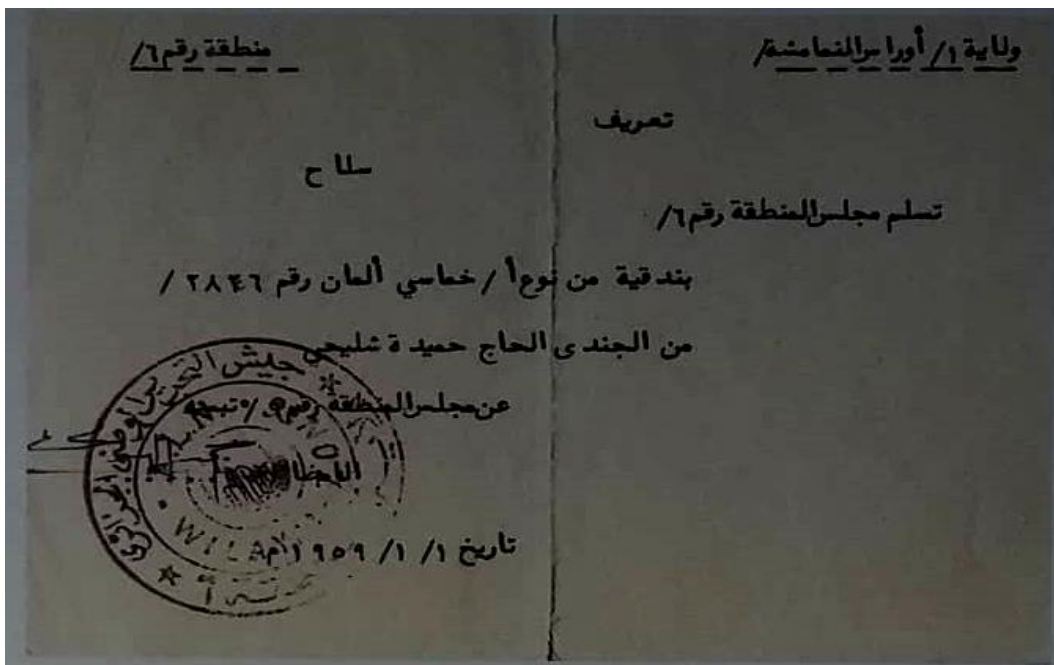 ولاية ١/ أوراس النمامشة/
منطقة رقم ٦/
تعريف
سلاح
تسلم مجلس المنطقة رقم ٦/
بندقية من نوع أ / خماسي ألمان رقم ٢٨٤٦ /
من الجندى الحاج حميدة شليحي
عن مجلس المنطقة رقم
الإمضاء
تاريخ ١/ ١/ ١٩٥٩م
جيش التحرير الوطني الجزائري
WILA